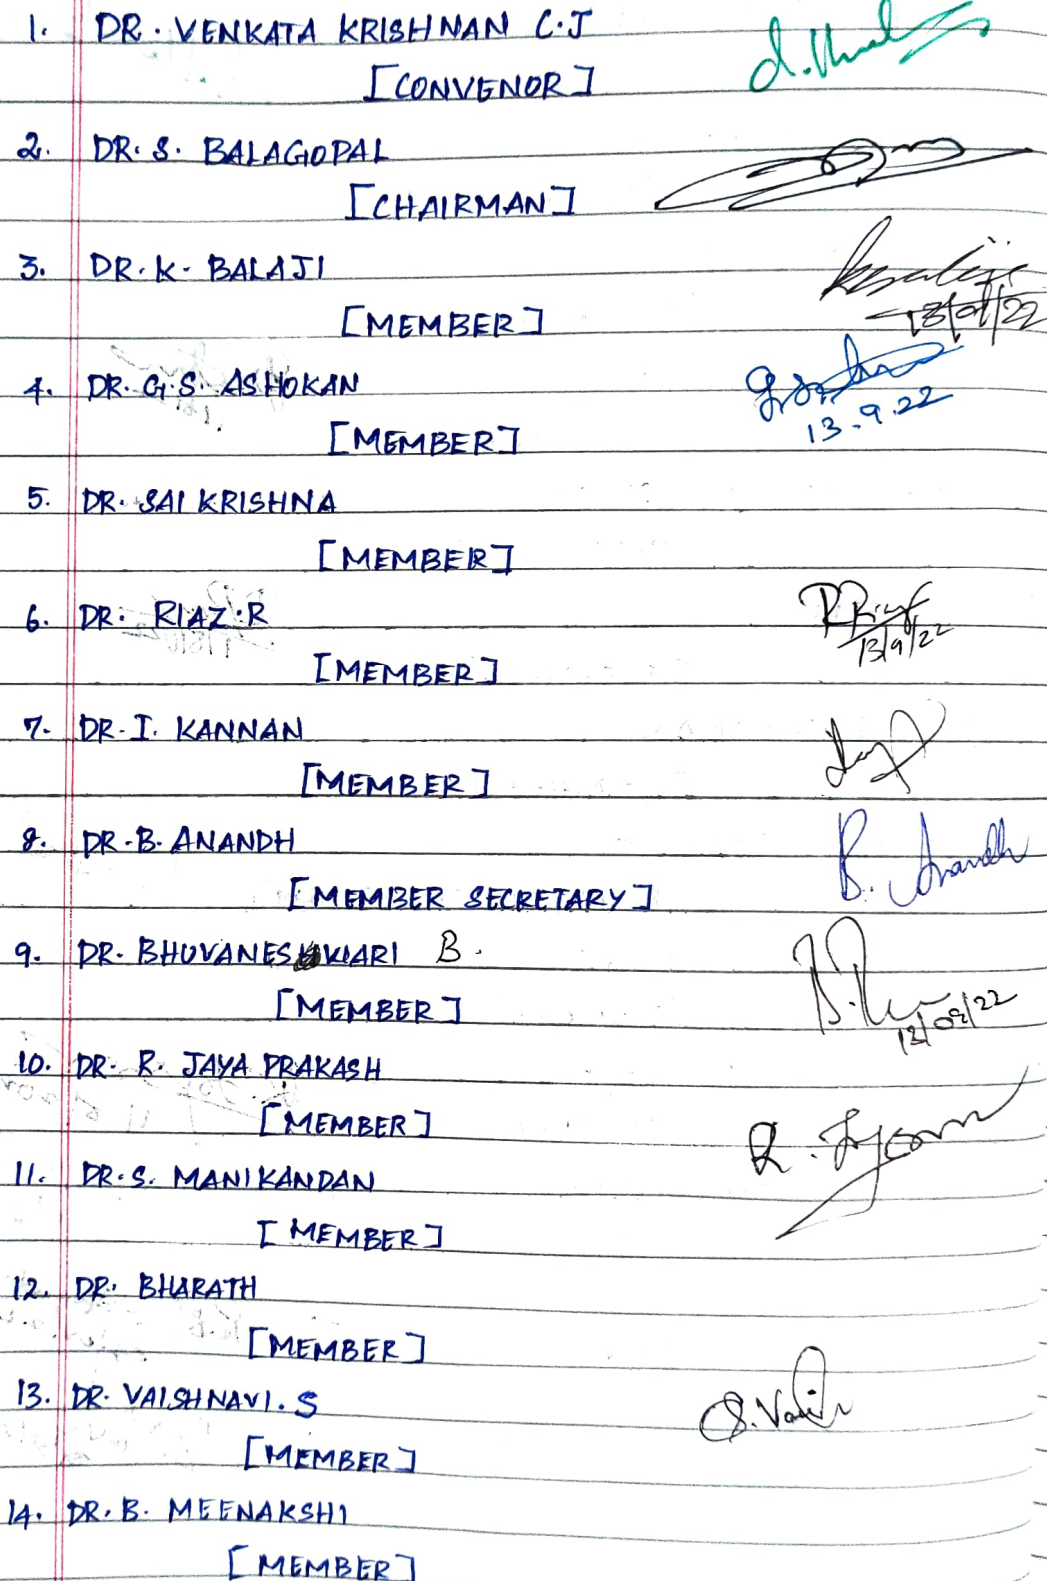 1. DR. VENKATA KRISHNAN C.J
[CONVENOR]
2. DR. S. BALAGOPAL
[CHAIRMAN]
3. DR. K. BALAJI
[MEMBER]
13/09/22
4. DR. G.S. ASHOKAN
[MEMBER]
13.9.22
5. DR. SAI KRISHNA
[MEMBER]
6. DR. RIAZ.R
[MEMBER]
13/9/22
7. DR. I. KANNAN
[MEMBER]
8. DR. B. ANANDH B. Anandh
[MEMBER SECRETARY]
9. DR. BHUVANESWARI B.
[MEMBER]
13/09/22
10. DR. R. JAYA PRAKASH
[MEMBER]
11. DR. S. MANIKANDAN
[MEMBER]
12. DR. BHARATH
[MEMBER]
13. DR. VAISHNAVI. S
[MEMBER]
14. DR. B. MEENAKSHI
[MEMBER]